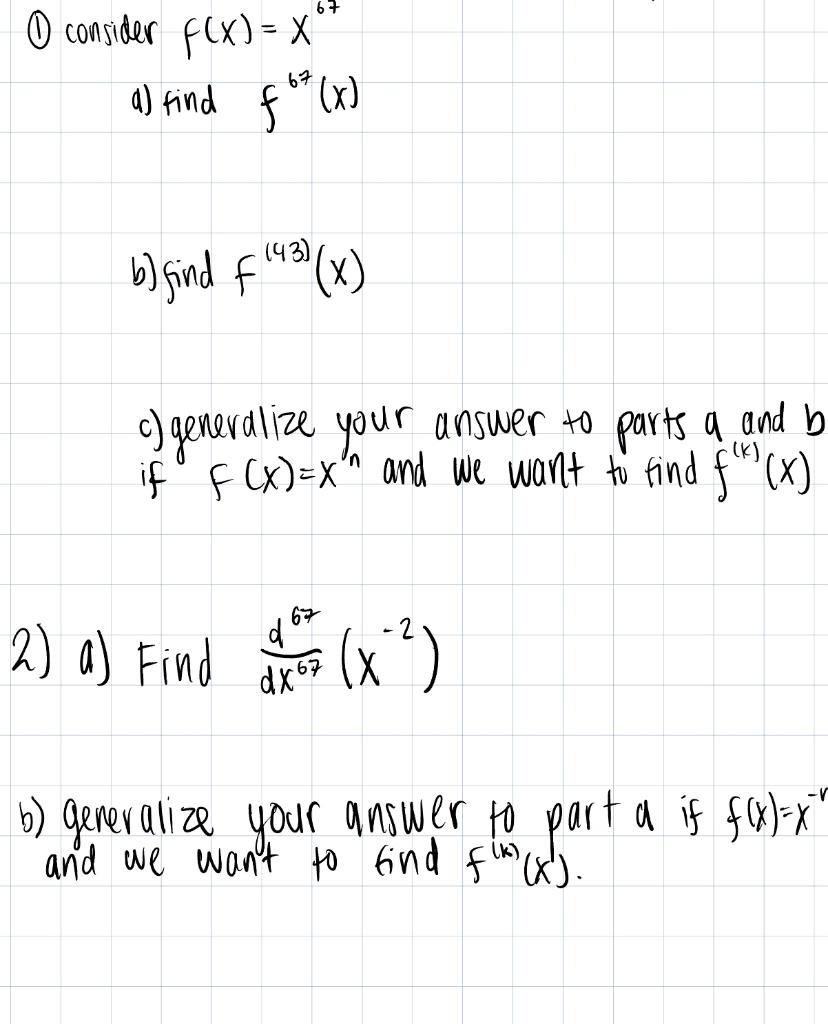 ① consider f(x) = x⁶⁷
a) find f⁶⁷(x)
b) find f⁽⁴³⁾(x)
c) generalize your answer to parts a and b
if f(x)=xⁿ and we want to find f⁽ᵏ⁾(x)
2) a) Find d⁶⁷/dx⁶⁷ (x⁻²)
b) generalize your answer to part a if f(x)=x⁻ⁿ
and we want to find f⁽ᵏ⁾(x).